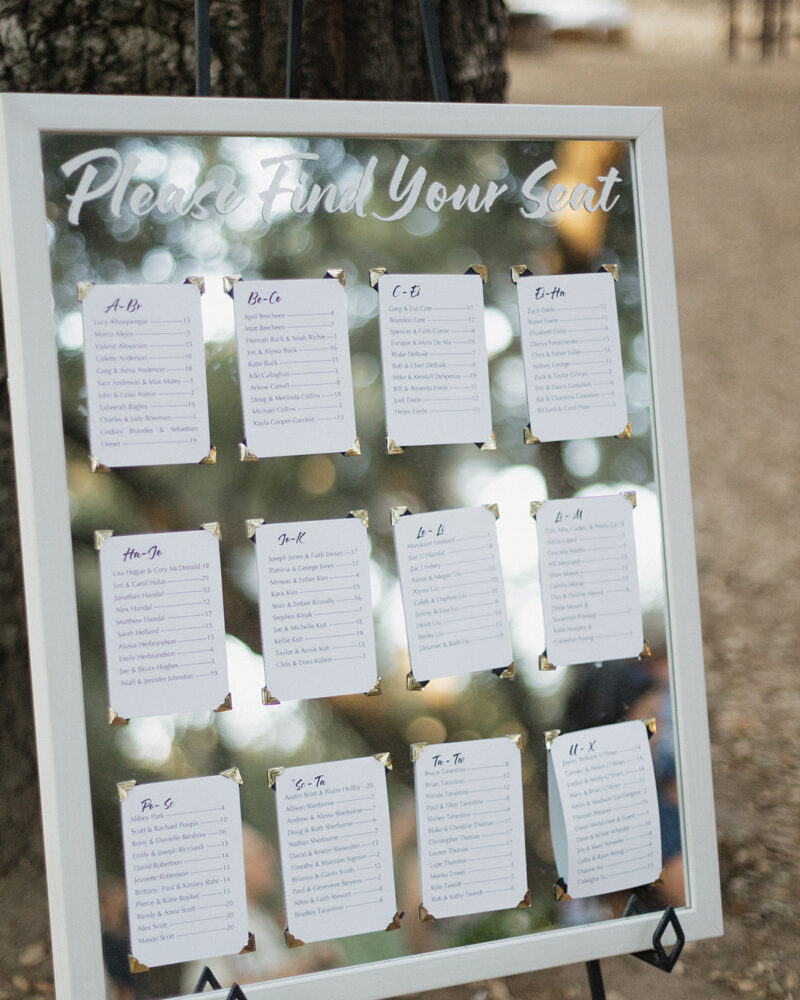 Please Find Your Seat
A-Br
Lucy Albuquerque 15
Marco Alejos 5
Valerie Alexanian 15
Colette Anderson 18
Greg & Anna Anderson 18
Sam Anderson & Max Matey 3
John & Luisa Austin 2
Taheerah Bagley 19
Charles & Judy Bowman 1
Lindsay Brandes & Sebastian
Unset 19
Be-Co
April Breechen 4
Matt Breechen 7
Hannah Buck & Noah Richie 3
Jon & Alyssa Buck 16
Katie Buck 15
Kiki Callaghan 3
Arlene Carroll 8
Doug & Merlinda Collins 18
Michael Collins 5
Kayla Cooper-Gamble 13
C-Ei
Greg & Eva Cote 17
Brandon Cote 12
Spencer & Faith Currie 4
Enrique & Myra De Ala 19
Blake DeBusk 7
Bob & Cheri DeBusk
Mike & Kendall DeSpenza
Bill & Amanda Eisele 11
Josh Eisele 12
Helen Eisele 11
Ei-Ha
Zach Eisele 12
Karen Eisele
Elizabeth Field
Chris & Esther Fuller
Sydney George
Zack & Taylor Gilman
Richard & Carol Haas
Ha-Jo
Lisa Hague & Cory McDonald 18
Jim & Carol Halas 20
Jonathan Handal 12
Alex Handal 12
Matthew Handal 17
Sarah Helland 13
Alyssa Herbrandson 15
Emily Herbrandson 4
Joe & Skyzx Hughes 5
Niall & Jennifer Johnston 19
Jo-K
Joseph Jones & Faith Jordan 17
Patricia & George Jones 11
Minsoo & Esther Kim 4
Karis Kim 15
Sean & Ember Kinnally 16
Stephen Kmak 7
Joe & Michelle Koh 18
Kellie Koh 18
Taylor & Annie Koh 13
Chris & Doro Kollert
Le-Li
Marykaye Lenhard
Jian Li Handal
Zac Lindsey
Aaron & Megan Liu
Alyssa Liu
Caleb & Daphne Liu
Jimmy & Lisa Liu
Heidi Liu
Becky Liu
Doumer & Ruth Liu
Li - M
Tim, Mia, Caden, & Penny Liu
Alicia Lopez
Gracielle Martin
Katie Murphy &
Cameron Young
Pe-Sc
Abbey Park 4
Scott & Rachael Poupis 10
Rony & Danielle Renbow 16
Emily & Joseph Ricciardi 13
David Robertson 14
Jeanette Robertson 11
Brittany, Paul & Kinsley Rohr 14
Pierce & Katie Roybal 13
Randy & Anna Scott 20
Alex Scott 20
Mason Scott 20
Sc-Ta
Austin Scott & Blaire Holtby 20
Allison Sherburne 7
Andrew & Alyssa Sherburne 7
Doug & Ruth Sherburne 6
Nathan Sherburne 7
David & Kristin Showalter 13
Timothy & Shannon Sigmon 2
Brianna & Gavin Smith 12
Paul & Geneviève Stevens 2
Allen & Faith Stewart 8
Bradley Tarantino 8
Ta-Tw
Bruce Tarantino 8
Brian Tarantino 12
Nicole Tarantino 12
Paul & Ellen Tarantino 8
Shirley Tarantino 8
Blake & Christine Thomas 17
Christopher Thomas 17
Lauren Thomas 17
Lupe Thornton 2
Marisa Trowel
Kyle Tweidt 5
Rob & Kathy Tweidt 6
U - X
Jordan & Molly U'Tiren
Mary & Brian U'Tiren
Hannah Weaver
Gwen Weishimer & Guest
Dave & Elouie Wheeler
Jim & Mary Wheeler
Lydia & Ryan Wong
Dianne Xu
Caleigha Xu